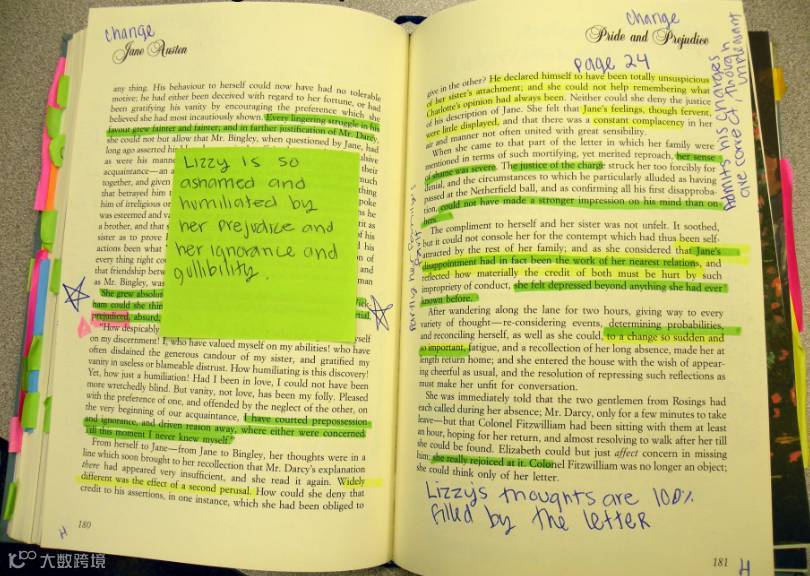 change
Jane Austen
any thing. His behaviour to herself could now have had no tolerable
motive; he had either been deceived with regard to her fortune, or had
been gratifying his vanity by encouraging the preference which she
believed she had most incautiously shown. Every lingering struggle in his
favour grew fainter and fainter; and in farther justification of Mr. Darcy,
she could not but allow that Mr. Bingley, when questioned by Jane, had
long ago asserted his
as were his manne
acquaintance—an a
together, and given
that betrayed him t
him of irreligious or
was esteemed and v
a brother, and that s
sister as to prove
actions been what
every thing right cou
that friendship betwe
as Mr. Bingley, was
Lizzy is so
ashamed and
humiliated by
her prejudice and
her ignorance and
gullibility.
She grew absolut
ham could she thin
prejudiced, absurd.
"How despicably
on my discernment! I, who have valued myself on my abilities! who have
often disdained the generous candour of my sister, and gratified my
vanity in useless or blameable distrust. How humiliating is this discovery!
Yet, how just a humiliation! Had I been in love, I could not have been
more wretchedly blind. But vanity, not love, has been my folly. Pleased
with the preference of one, and offended by the neglect of the other, on
the very beginning of our acquaintance, I have courted prepossession
and ignorance, and driven reason away, where either were concerned
Till this moment I never knew myself."
From herself to Jane—from Jane to Bingley, her thoughts were in a
line which soon brought to her recollection that Mr. Darcy's explanation
there had appeared very insufficient, and she read it again. Widely
different was the effect of a second perusal. How could she deny that
credit to his assertions, in one instance, which she had been obliged to
180
H
change
Pride and Prejudice
page 24
give in the other? He declared himself to have been totally unsuspicious
of her sister's attachment; and she could not help remembering what
Charlotte's opinion had always been. Neither could she deny the justice
of his description of Jane. She felt that Jane's feelings, though fervent,
were little displayed, and that there was a constant complacency in her
air and manner not often united with great sensibility.
When she came to that part of the letter in which her family were
mentioned in terms of such mortifying, yet merited reproach, her sense
of shame was severe. The justice of the charge struck her too forcibly for
denial, and the circumstances to which he particularly alluded as having
passed at the Netherfield ball, and as confirming all his first disapproba-
tion, could not have made a stronger impression on his mind than on
hers.
The compliment to herself and her sister was not unfelt. It soothed,
but it could not console her for the contempt which had thus been self-
attracted by the rest of her family; and as she considered that Jane's
disappointment had in fact been the work of her nearest relations, and
reflected how materially the credit of both must be hurt by such
impropriety of conduct, she felt depressed beyond anything she had ever
known before.
After wandering along the lane for two hours, giving way to every
variety of thought—re-considering events, determining probabilities,
and reconciling herself, as well as she could, to a change so sudden and
so important, fatigue, and a recollection of her long absence, made her at
length return home; and she entered the house with the wish of appear-
ing cheerful as usual, and the resolution of repressing such reflections as
must make her unfit for conversation.
She was immediately told that the two gentlemen from Rosings had
each called during her absence; Mr. Darcy, only for a few minutes to take
leave—but that Colonel Fitzwilliam had been sitting with them at least
an hour, hoping for her return, and almost resolving to walk after her till
she could be found. Elizabeth could but just affect concern in missing
him; she really rejoiced at it. Colonel Fitzwilliam was no longer an object;
she could think only of her letter.
Lizzy's thoughts are 100%
filled by the letter
181
H
Admits his charges
are correct, though
unpleasant
partly her family's
大数跨境